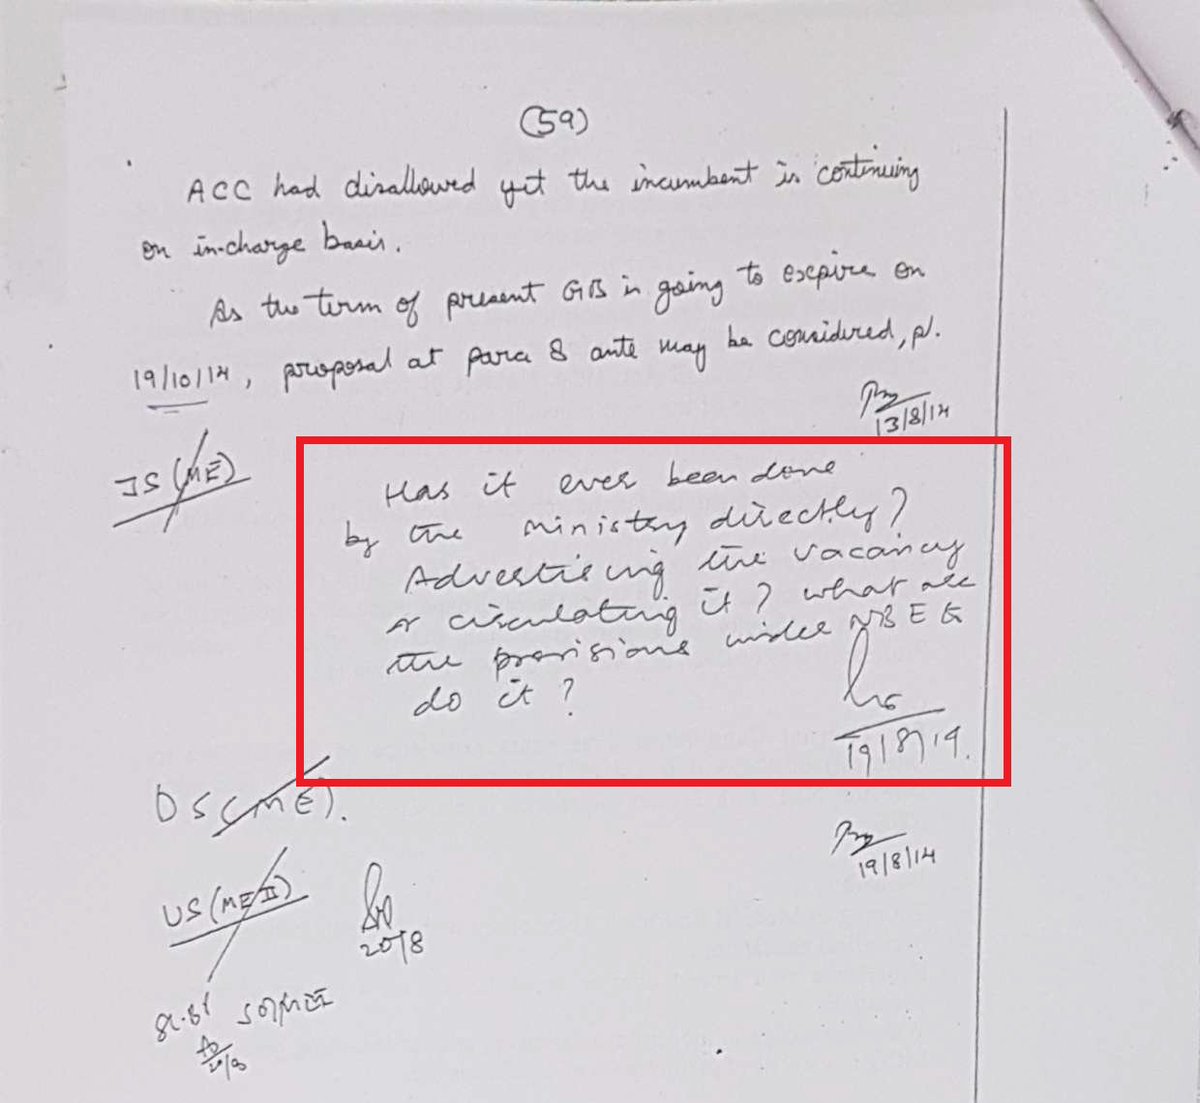 (59)
ACC had disallowed yet the incumbent is continuing
on in-charge basis.
As the term of present GB is going to expire on
19/10/14, proposal at para 8 ante may be considered, pl.
13/8/14
JS (ME)
Has it ever been done
by the ministry directly?
Advertising the vacancy
or circulating it? what are
the provisions under NBE to
do it?
19/8/14.
DS (ME).
19/8/14
US (ME II)
20/8
SO/ME II
20/8